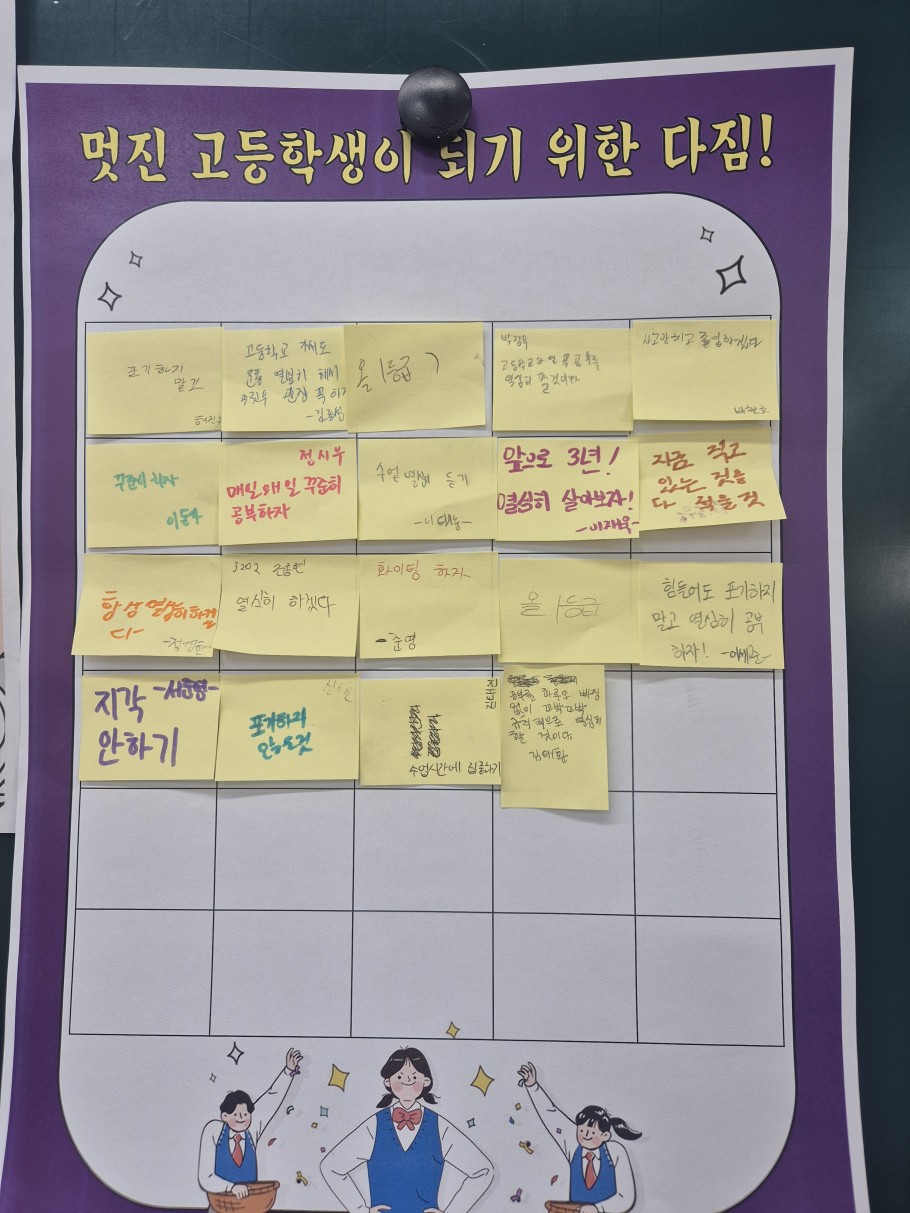 멋진 고등학생이 되기 위한 다짐!
포기하지
말것
고등학교 가서도
운동 열심히 해서
꼭 하기
올 1등급
고등학교
열심히 할것이다
사고안치고 졸업하겠다
꾸준히 하자
이든
전시우
매일매일 꾸준히
공부하자
수업 열심히 듣기
앞으로 3년!
열심히 살아보자!
-이재욱-
지금 적고
있는 것을
다 적을 것
항상 열심히하겠
다-
3202
열심히 하겠다
화이팅 하자
-준명
올 1등급
힘들어도 포기하지
말고 열심히 공부
하자!
지각 -서준영-
안하기
포기하지
않을것
김태진
수업시간에 집중하기
공부를 하루도 빠짐
없이 꼬박꼬박
규칙적으로 열심히
할 것이다
김태환